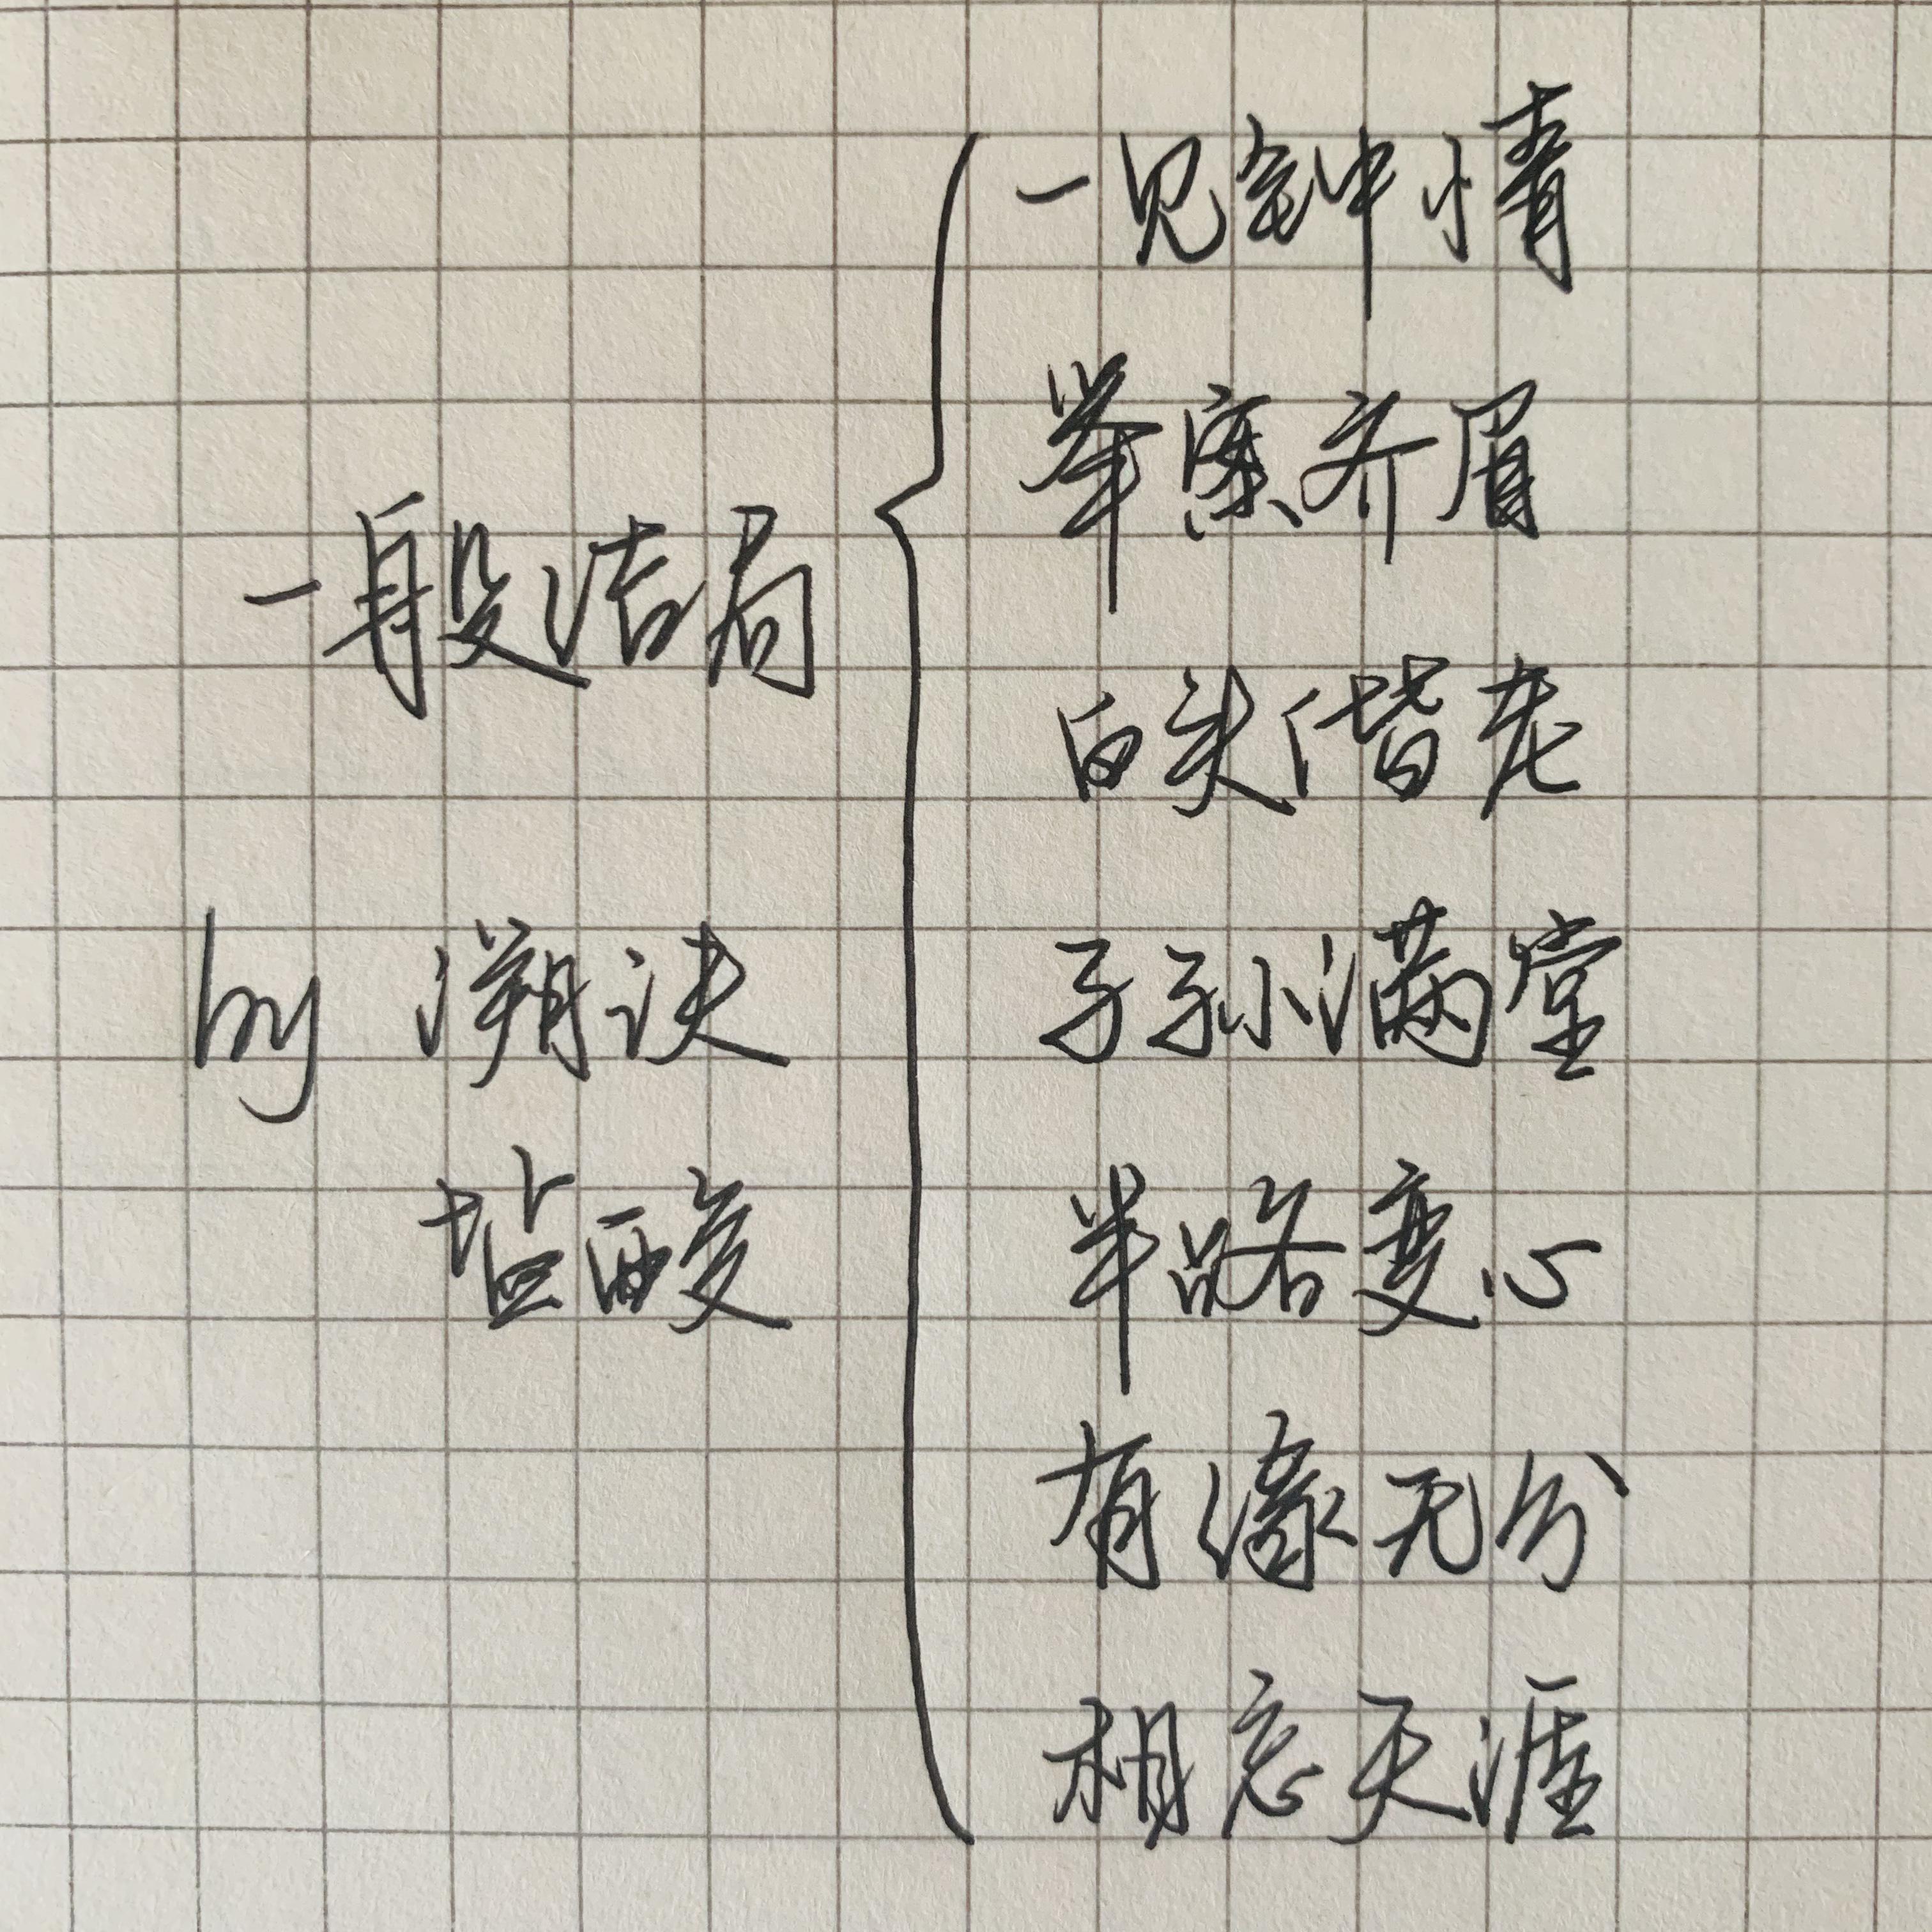 一般结局
by 溯诀
盐酸
一见钟情
举案齐眉
白头偕老
子孙满堂
半路变心
有缘无分
相忘天涯